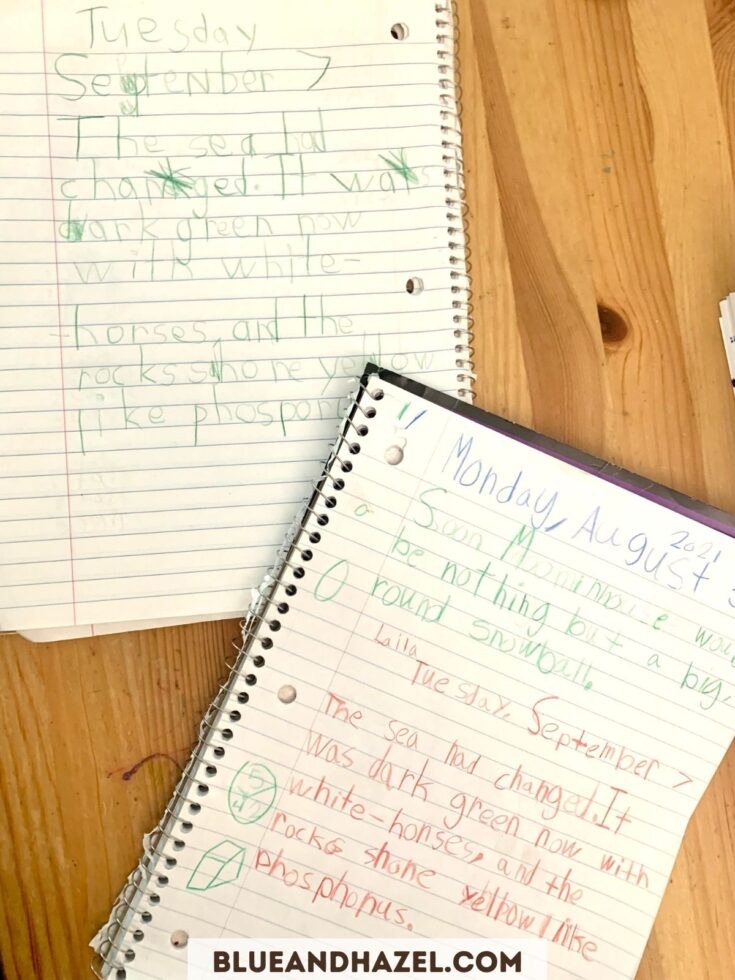 Tuesday
September 7
The sea had
changed. It was
dark green now
with white-
horses, and the
rocks shone yellow
like phosphor
Monday, August
2021
Soon Moominhouse would
be nothing but a big,
round snowball.
Laila
Tuesday, September 7
The sea had changed. It
was dark green now with
white-horses, and the
rocks shone yellow like
phosphonus.
BLUEANDHAZEL.COM